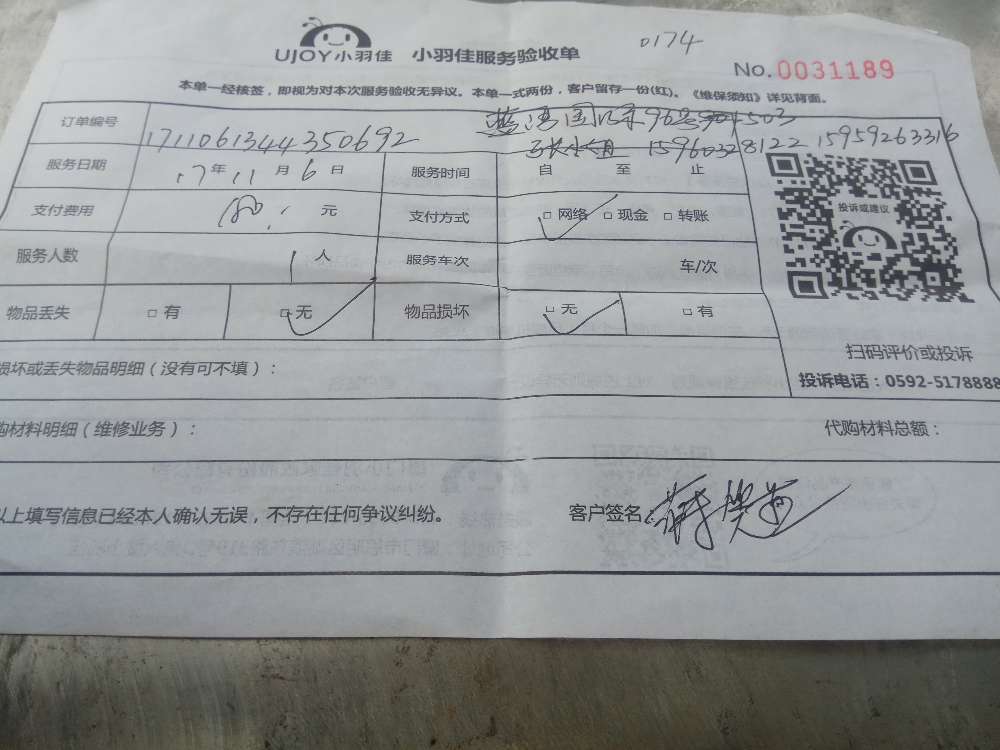 UJOY小羽佳 小羽佳服务验收单 0174
No.0031189
本单一经核签，即视为对本次服务验收无异议。本单一式两份，客户留存一份(红)。《维保须知》详见背面。
订单编号 1711061344350692
15960328122 15959263316
服务日期 17年11月6日 服务时间 自 至 止
支付费用 元 支付方式 □网络 □现金 □转账
投诉或建议
服务人数 1人 服务车次 车/次
物品丢失 □有 □无 物品损坏 □无 □有
扫码评价或投诉
损坏或丢失物品明细（没有可不填）：
投诉电话：0592-5178888
购材料明细（维修业务）： 代购材料总额：
以上填写信息已经本人确认无误，不存在任何争议纠纷。 客户签名